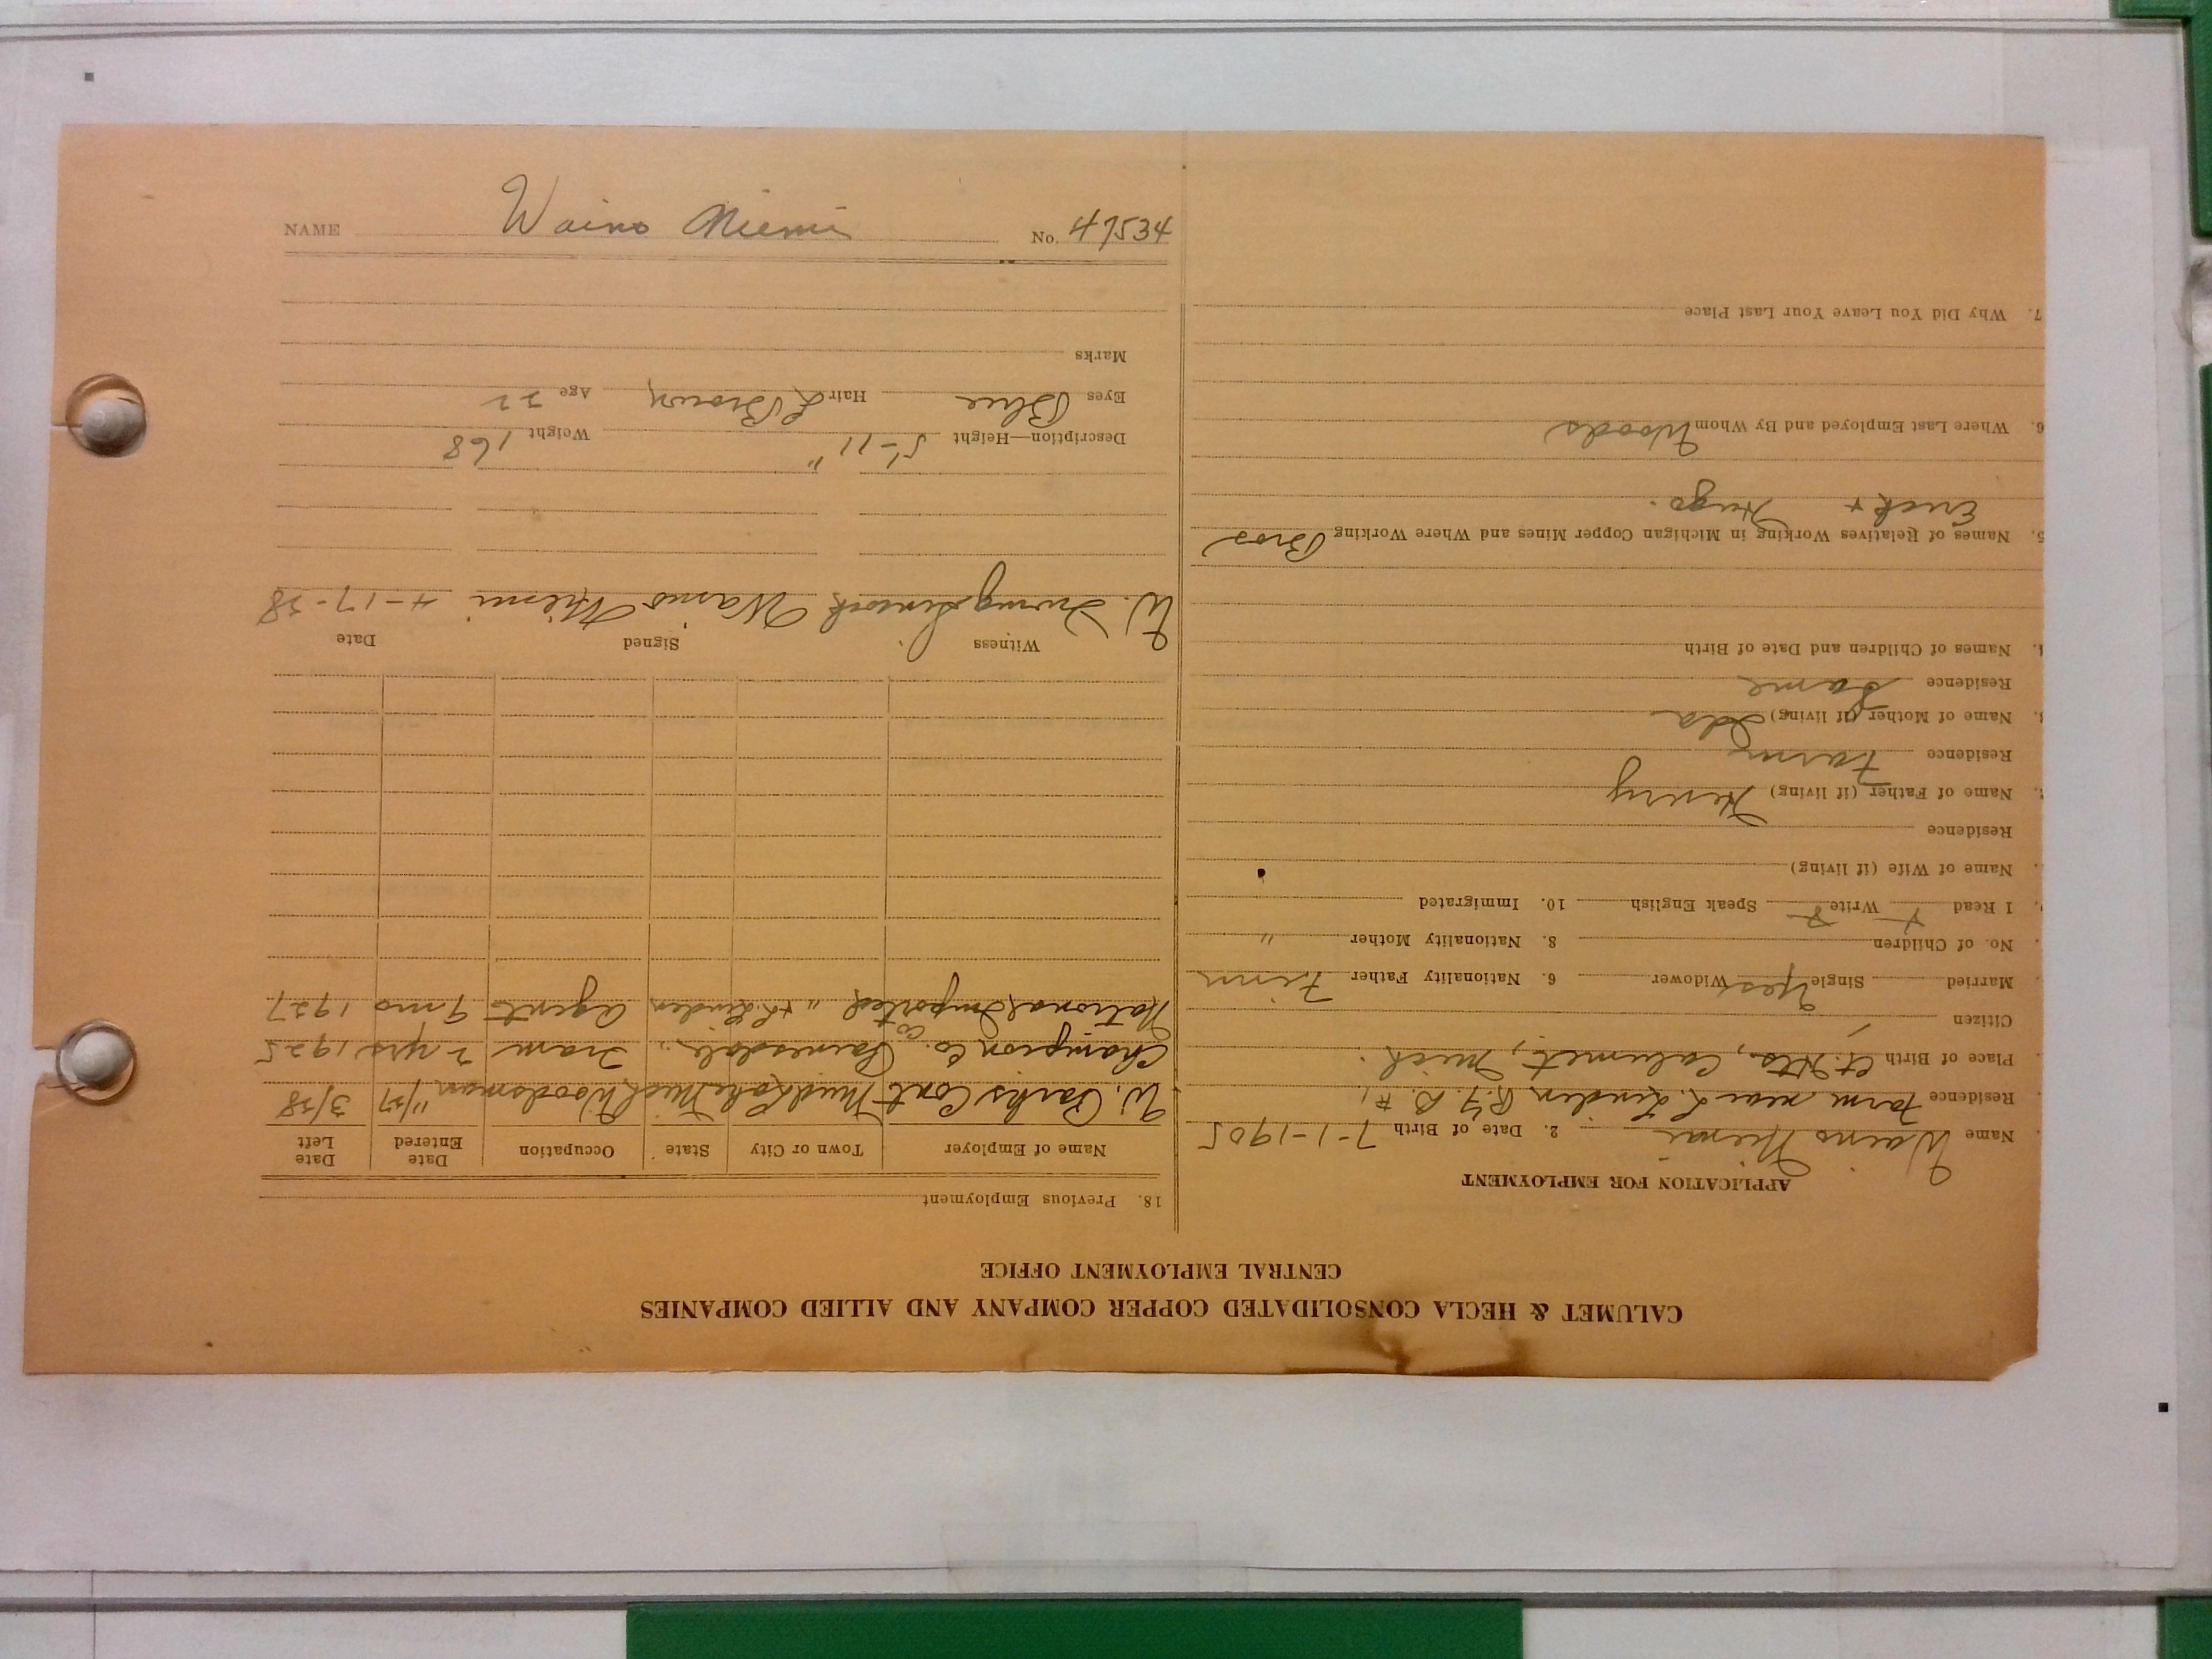 NAME Waino Niemi No. 47534
CALUMET & HECLA CONSOLIDATED COPPER COMPANY AND ALLIED COMPANIES
CENTRAL EMPLOYMENT OFFICE
APPLICATION FOR EMPLOYMENT
Name Waino Niemi 2. Date of Birth 7-1-1905
Residence Farm near L. Linden R.F.D. #1
Place of Birth Ct. Hts., Calumet, Mich.
Citizen
Married Single Yes Widower 6. Nationality Father Finn
No. of Children 8. Nationality Mother "
I Read Write Speak English 10. Immigrated
Name of Wife (if living)
Residence
Name of Father (if living) Henry
Residence Farm
Name of Mother (if living) Ida
Residence Same
Names of Children and Date of Birth
5. Names of Relatives Working in Michigan Copper Mines and Where Working Bros
Erick + Hugo.
6. Where Last Employed and By Whom Woods
7. Why Did You Leave Your Last Place
18. Previous Employment
Name of Employer Town or City State Occupation Date Entered Date Left
W. Parks Cont Mud Lake Mich Woodsman 11/37 3/38
Champion Co. Painesdale " Tram 2 yrs 1925
National Imported Co " L. Linden Agent 9 mo 1927
Witness Signed Date
W. Waino Niemi 4-17-38
Description—Height 5'-11" Weight 168
Eyes Blue Hair L Brown Age
Marks